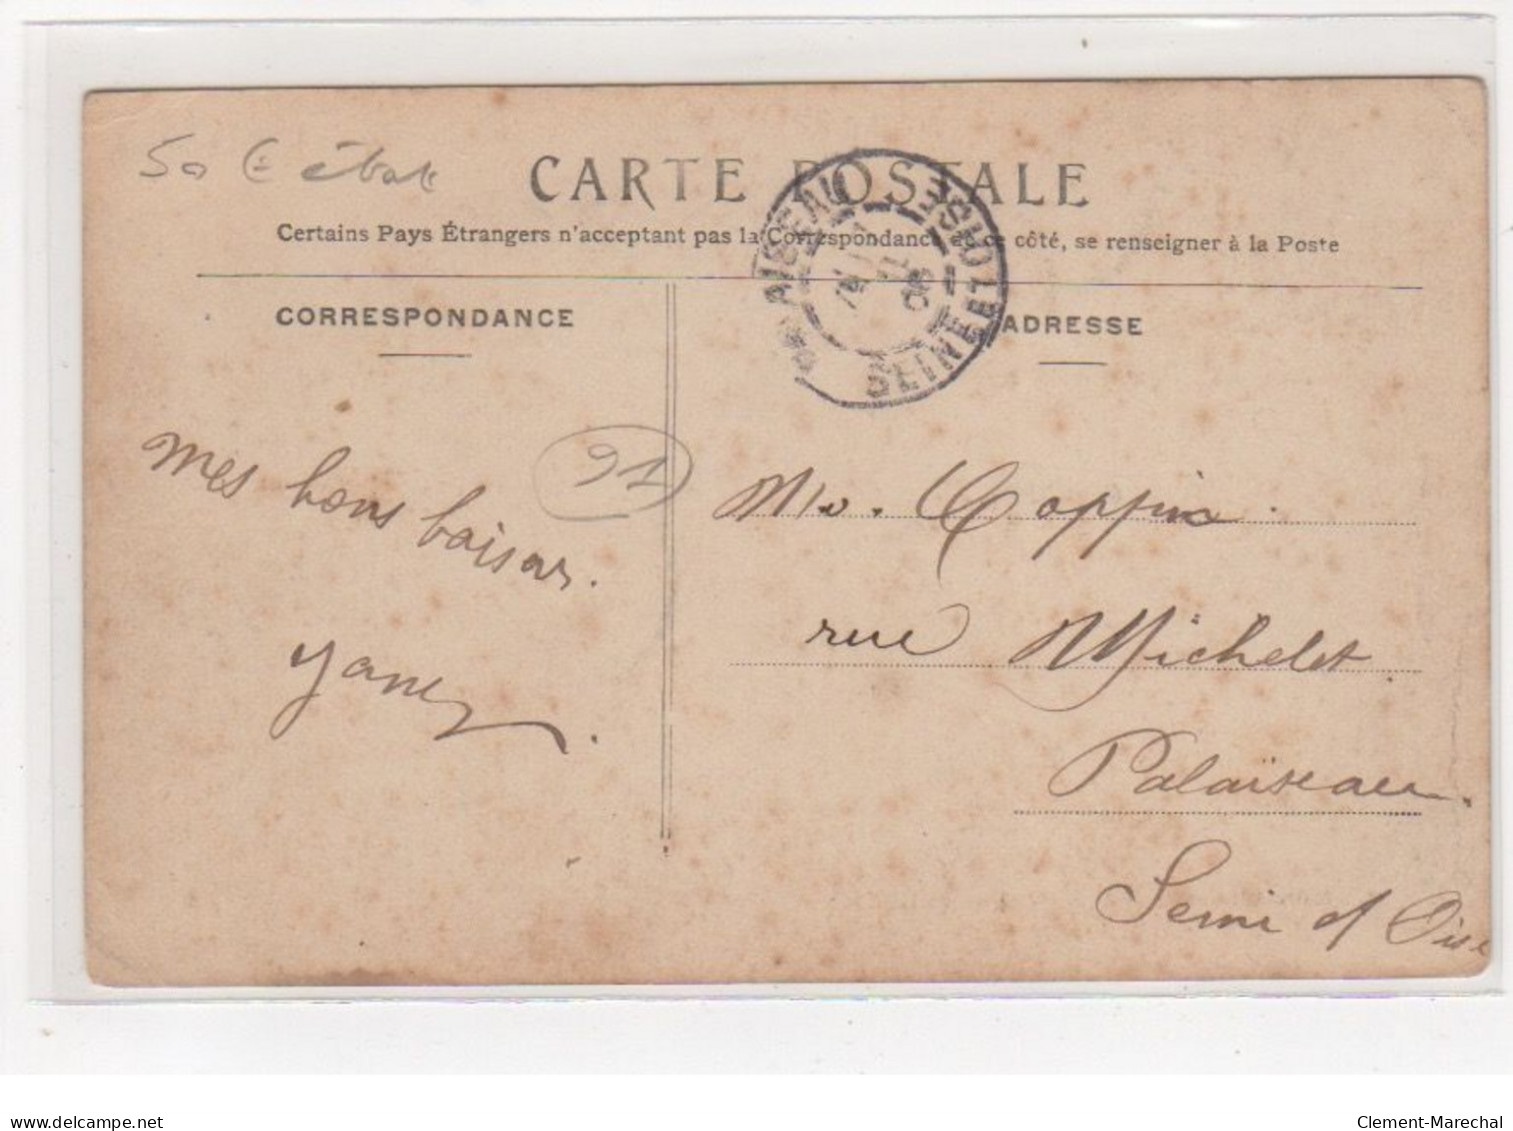 50 € état
CARTE POSTALE
Certains Pays Étrangers n'acceptant pas la Correspondance de ce côté, se renseigner à la Poste
PALAISEAU
SEINE ET OISE
CORRESPONDANCE
ADRESSE
91
mes bons baisers.
Mr. Coppin.
rue Michelet
Palaïseau.
Seine et Oise
delcampe.net
Clement-Marechal